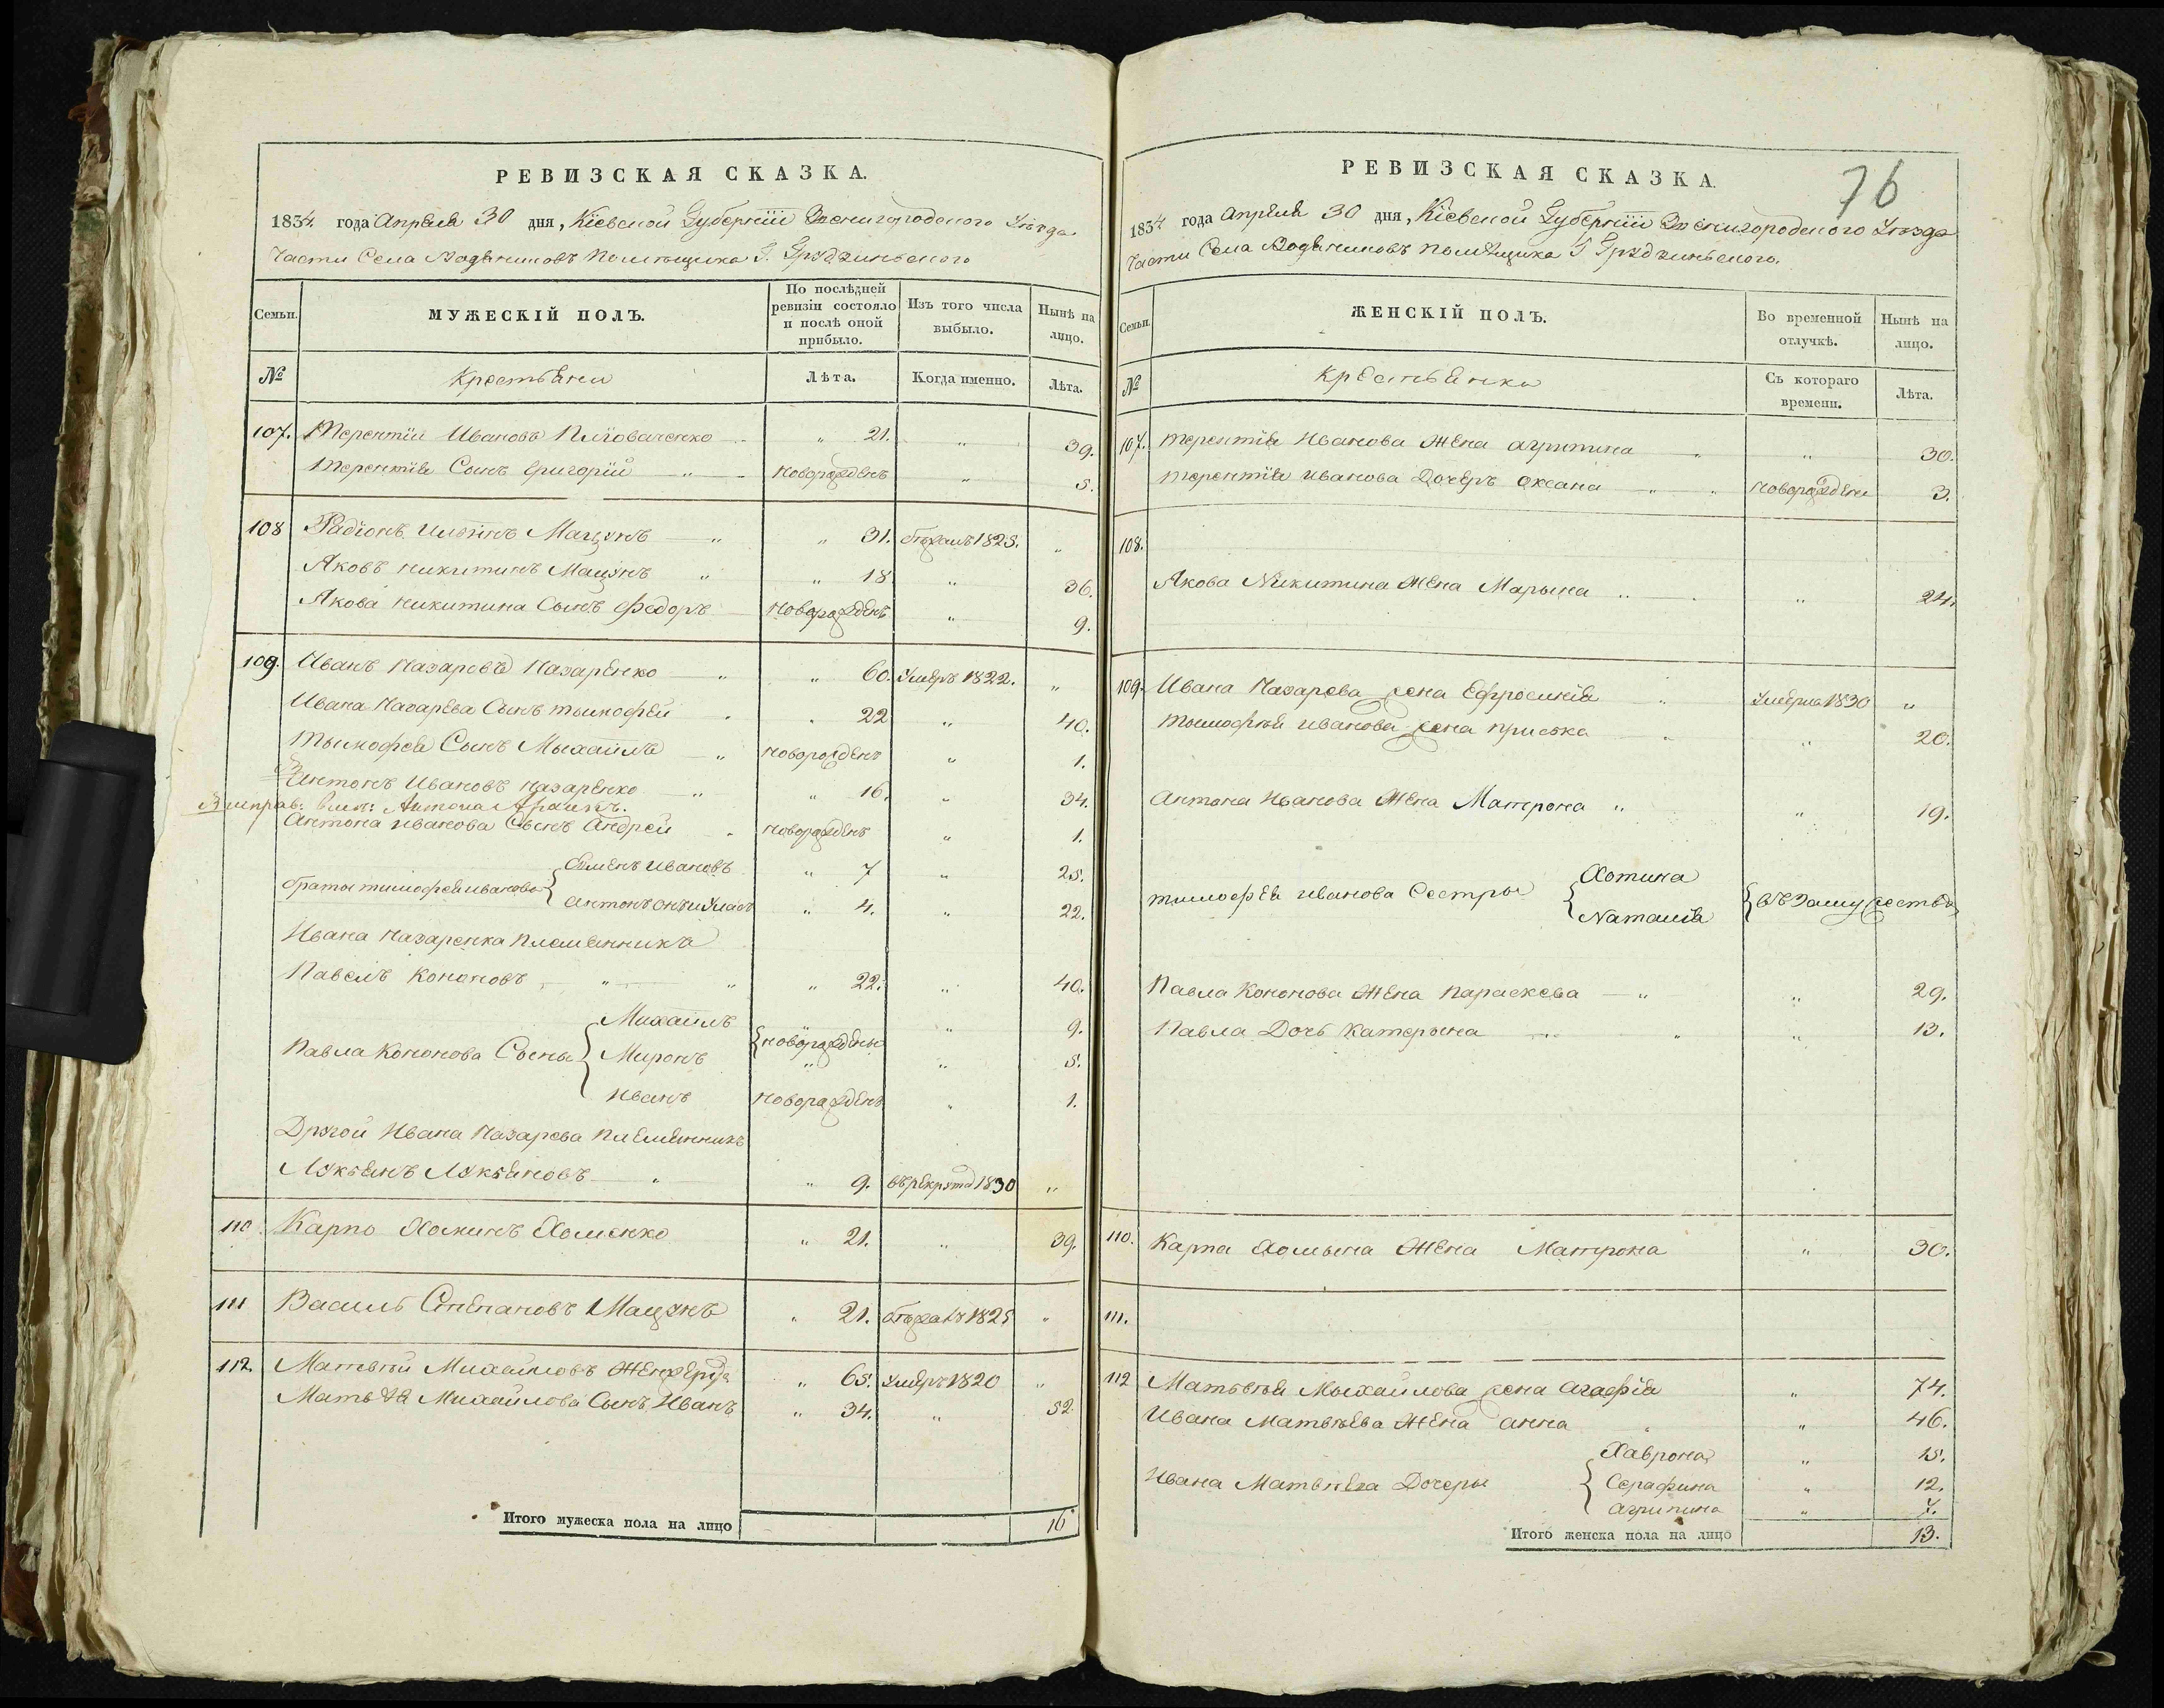 РЕВИЗСКАЯ СКАЗКА.
1834 года Апреля 30 дня, Кіевской Губерніи Звенигородского Уезда
Части Села Водяниковъ Помѣщика Г.
Семьи.
МУЖЕСКІЙ ПОЛЪ.
По послѣдней ревизіи состояло и послѣ оной прибыло.
Изъ того числа выбыло.
Нынѣ на лицо.
№
Крестьяни
Лѣта.
Когда именно.
Лѣта.
107. Терентій Ивановъ " 21. " 39.
Терентія Сынъ Григорій " новорожденъ " 5.
108 Радіонъ Мацунъ " " 31. 1825. "
Яковъ Никитинъ Мацунъ " " 18 " 36.
Якова Никитина Сынъ Федоръ новорожденъ " 9.
109. Иванъ Назаровъ Назаренко " " 60. Умеръ 1822. "
Ивана Назарева Сынъ тымофей " " 22 " 40.
Тымофея Сынъ Мыхайлъ " новорожденъ " 1.
Антонъ Ивановъ назаренко " " 16. " 34.
Антона Иванова Сынъ Андрей " новорожденъ " 1.
браты тимофея иванова { Семенъ Ивановъ " 7 " 25.
Антонъ онъ и Уласъ " 4. " 22.
Ивана Назаренка племянника
Павелъ Кононовъ " " " 22. " 40.
Павла Кононова Сыны { Михайлъ { новорождены " 9.
Миронъ " " 5.
Иванъ новорожденъ " 1.
Другой Ивана Назарева племянникъ
Лукьянъ Лукьяновъ " " 9. въ рекруты 1830 "
110 Карпо Хоминъ Хоменко " 21. " 39.
111 Василь Степановъ Мацунъ " 21. 1825 "
112. Матвѣй Михайловъ " 65. Умеръ 1820 "
Матвѣя Михайлова Сынъ Иванъ " 34. " 52.
Итого мужеска пола на лицо 16
76
РЕВИЗСКАЯ СКАЗКА.
1834 года Апреля 30 дня, Кіевской Губерніи Звенигородского Уезда
Части Села Водяниковъ помѣщика Г
Семьи.
ЖЕНСКІЙ ПОЛЪ.
Во временной отлучкѣ.
Нынѣ на лицо.
№
Крестьянки
Съ котораго времени.
Лѣта.
107. Терентія Иванова Жена агрипина " " 30.
Терентія Иванова Дочеръ Оксана " " 3.
108.
Якова Никитина Жена Марына " " 24.
109. Ивана Назарева жена Ефросинія " Умерла 1830 "
тымофѣя Иванова жена приська " 20.
Антона Иванова Жена Матрона " " 19.
тимофея иванова Сестры { Хотина
Наталія
Павла Кононова Жена Параскева " " 29.
Павла Дочь Катерына " " 13.
110. Карпа Хомына Жена Матрона " 30.
111.
112 Матвѣя Мыхайлова жена Агафія " 74.
Ивана Матвѣева Жена анна " 46.
Ивана Матвѣева Дочеры { Хаврона " 15.
Серафина " 12.
агрипина " 7.
Итого женска пола на лицо 13.